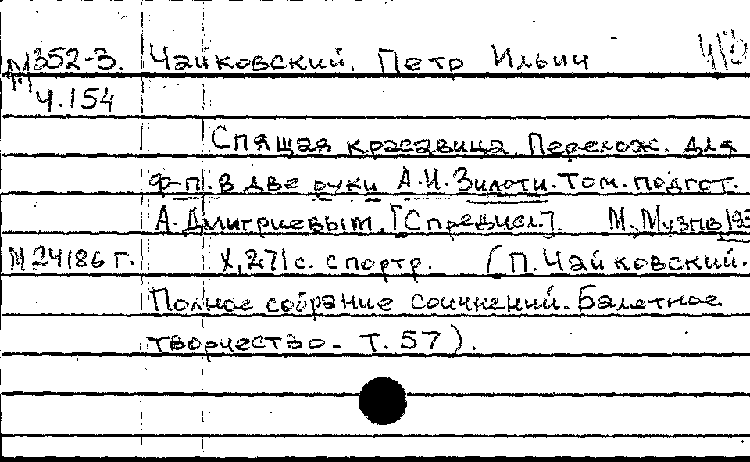 М352-3. Чайковский, Петр Ильич
Ч.154
Спящая красавица. Перелож. для
ф-п. в две руки А.И. Зилоти. Том. подгот.
А. Дмитриевым. [С предисл.]. М., Музгиз, 195
М 24186 г. X, 271 с. с портр. (П. Чайковский.
Полное собрание сочинений. Балетное
творчество. Т. 57).